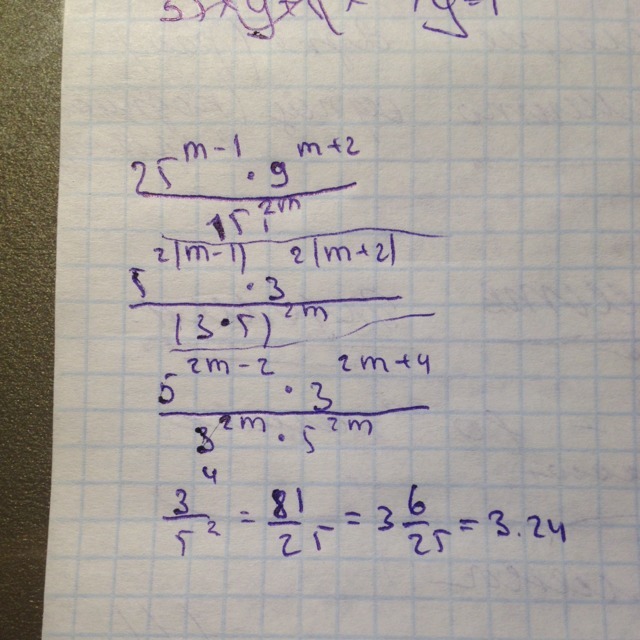 25^(m-1) · 9^(m+2)
15^(2m)
5^(2(m-1)) · 3^(2(m+2))
(3·5)^(2m)
5^(2m-2) · 3^(2m+4)
3^(2m) · 5^(2m)
3^4/5^2 = 81/25 = 3 6/25 = 3.24